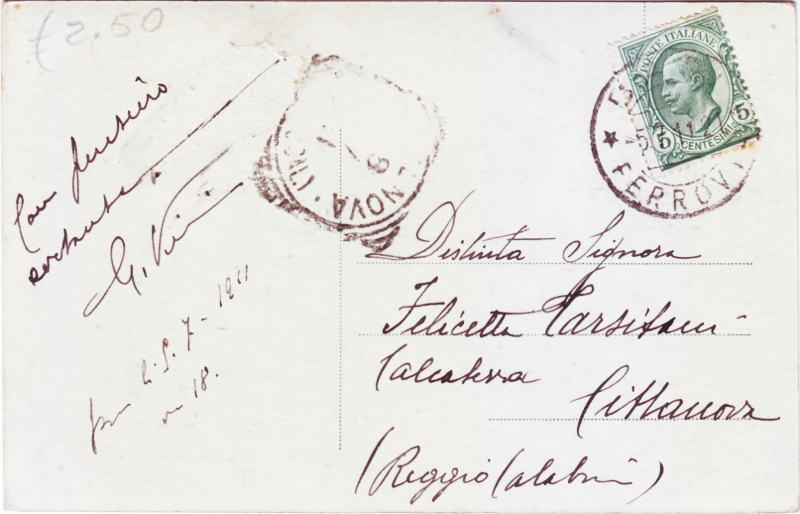 £2.50
Con pensiero
costante
G.
li 5. 7 - 1911
18.
NOVA
POSTE ITALIANE
5 CENTESIMI 5
FERROV
Distinta Signora
Felicetta Tarsitani
Calcaterra
Cittanova
(Reggio Calabria)